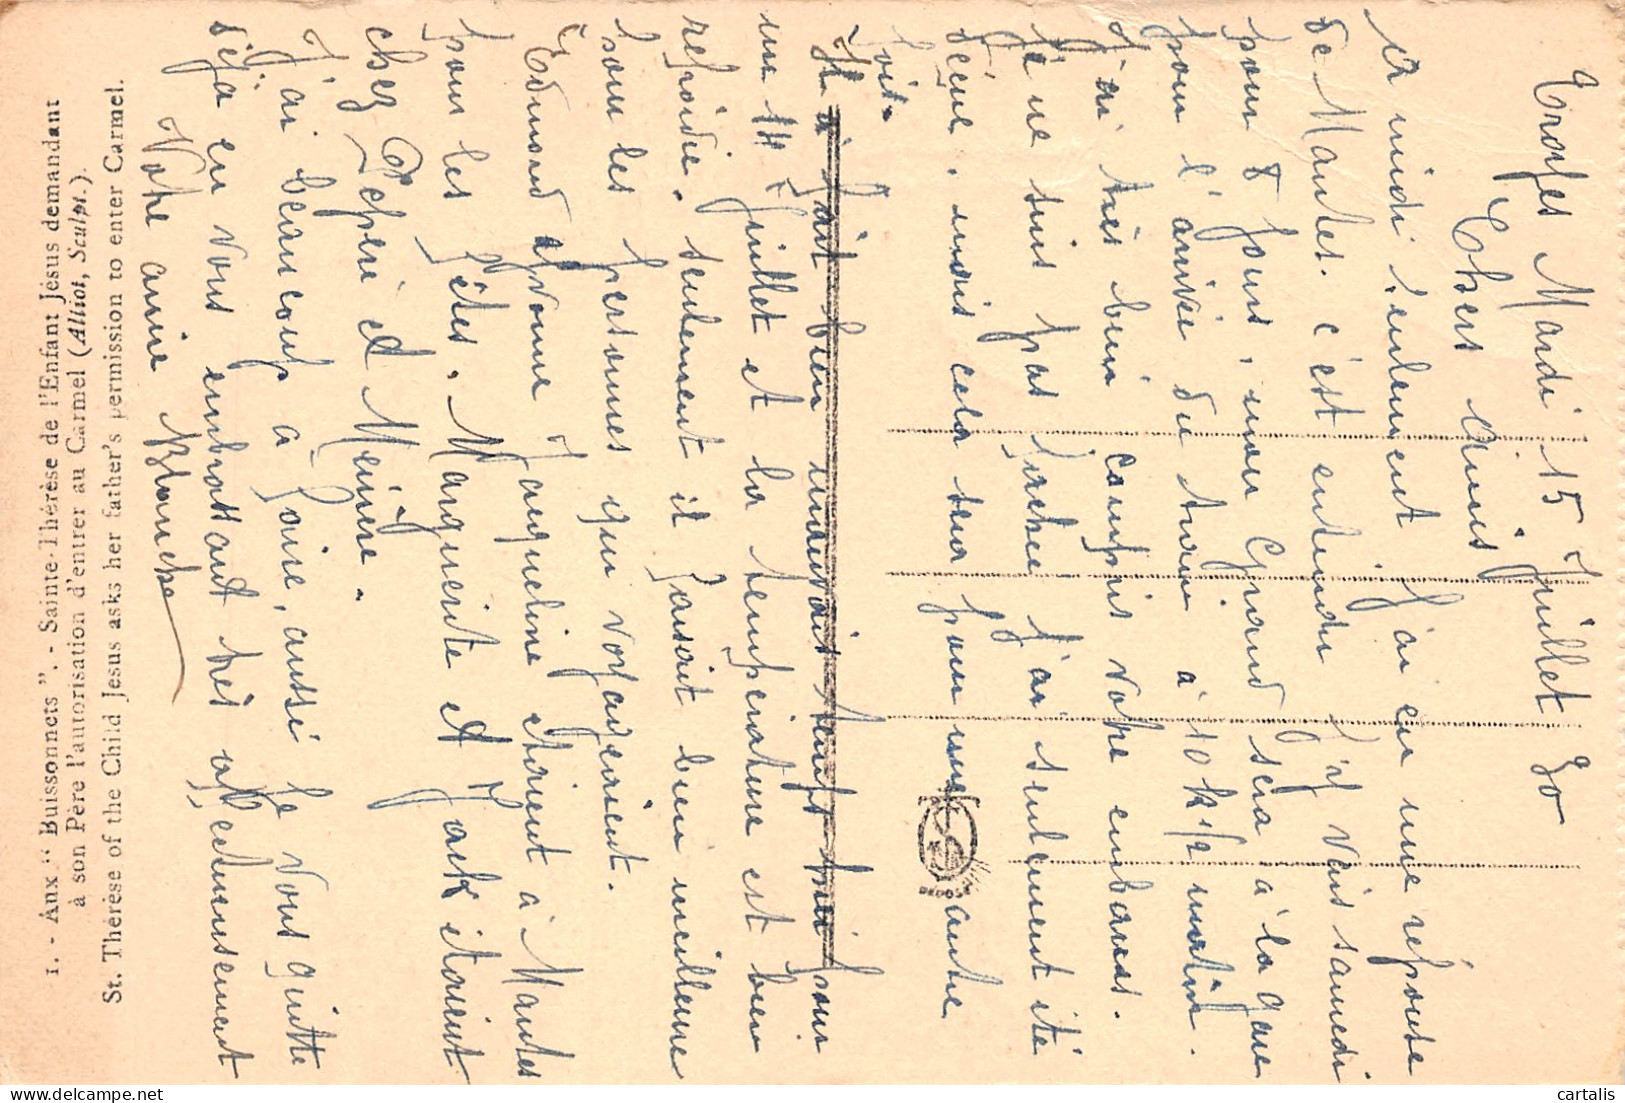 Troyes Mardi 15 Juillet 30
Chers Amis
A midi seulement j'ai eu une réponse
de Mantes. c'est entendu j'y vais samedi
pour 8 jours, mon Grand sera à la gare
pour l'arrivée du train à 10h 1/2 matin.
J'ai très bien compris votre embarras.
Je ne suis pas fachée j'ai seulement été
déçue, mais cela sera pour une autre
fois.
Il a fait bien mauvais temps hier pour
un 14 Juillet et la température est bien
refroidie. seulement il faisait bien meilleure
pour les personnes qui voyageaient.
Edmond Yvonne Jacqueline étaient à Mantes
pour les fêtes. Marguerite et Jack étaient
chez Pépéré et Mémère.
J'ai beaucoup à faire, aussi je vous quitte
déjà en vous embrassant très affectueusement
Votre amie Blanche
DÉPOSÉ
1. - Aux "Buissonnets". - Sainte-Thérèse de l'Enfant Jésus demandant
à son Père l'autorisation d'entrer au Carmel (Alliot, Sculpt.).
St. Thérèse of the Child Jesus asks her father's permission to enter Carmel.
cartalis